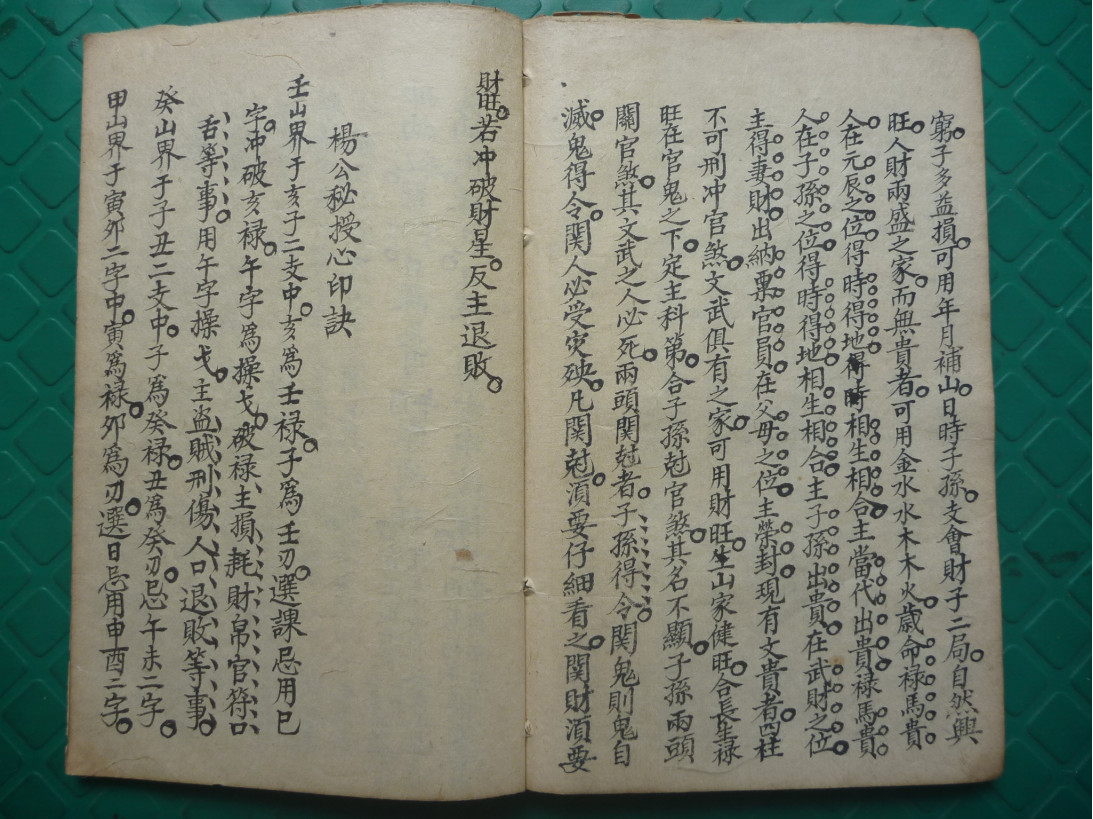 窮。子多益損。可用年月補山。日時子孫。支會財子二局。自然興
旺。人財兩盛之家。而無貴者。可用金水水木木火。歲命祿馬貴
人在元辰之位得時得地得時相生相合主當代出貴祿馬貴
人在子孫之位得時得地相生相合主子孫出貴在武財之位
主得妻財出納票官員在父母之位主榮封。現有文貴者。四柱
不可刑冲官煞。文武俱有之家。可用財旺。生山家健旺。合長生祿
旺在官鬼之下。定主科第。合子孫尅官煞。其名不顯。子孫兩頭
關官煞。其文武之人必死。兩頭関尅者。子孫得令関鬼則鬼自
滅。鬼得令。関人必受灾殃。凡関尅。湏要仔細看之。関財湏要
財旺。若冲破財星。反主退敗。
楊公秘授心印訣
壬山界于亥子二支中。亥爲壬祿。子爲壬刃。選課忌用巳
字。冲破亥祿。午字爲操戈。破祿主損耗財帛官符口
舌等事。用午字操戈。主盗賊刑傷人口退敗等事。
癸山界于子丑二支中。子爲癸祿。丑爲癸刃。忌午未二字。
甲山界于寅夘二字中。寅爲祿。夘爲刃。選日忌用申酉二字。